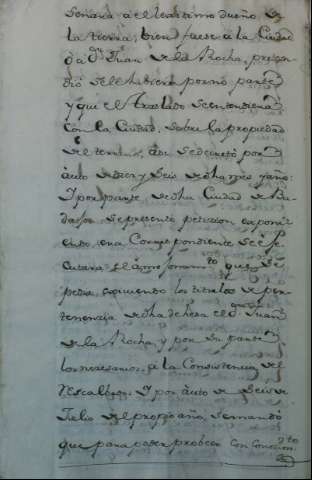 sonaria a el lexitimo dueño de
la tierra, bien fuese a la Ciudad
o a dn. Juan de la Rocha, preten
dio se le hubiera por no parte
y que el traslado se entendiera
con la Ciudad, sobre la propiedad
de el termino, a que se decretó por
auto de diez y seis de dho mes y año:
Y por parte de dha Ciudad de
se presentó peticion exponi
endo, era Correspondiente se e
cutara el que se
pedia exiviendo los titulos de per
tenencia de dha dehesa el dn. Juan
de la Rocha, y por su parte
los necesarios, a la Consistencia de el
Y por auto de seis de
Julio de el propio año, se mandó
que para poder probeer con conocimto.